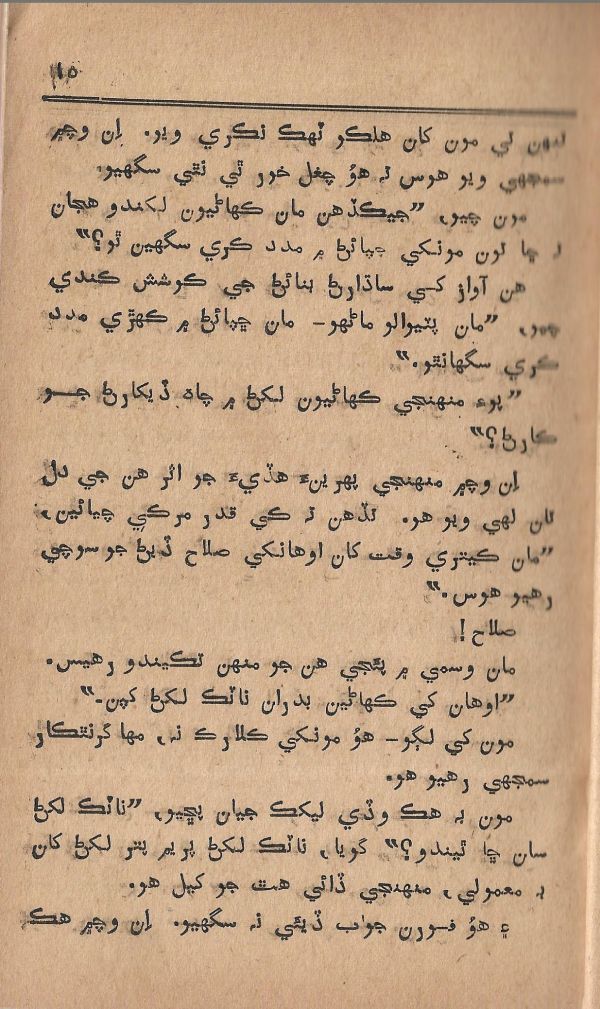 ١٥
تي مون کان هلڪو ٽهڪ نڪري ويو. اِن وچ۾
سمجهي ويو هوس تہ هوُ چغل خور ٿي نٿي سگهيو.
مون چيو، ”جيڪڏهن مان ڪهاڻيون لکندو هجان
تہ ڇا تون مونکي ڇپائڻ ۾ مدد ڪري سگهين ٿو؟“
هن آواز کـي ساڌارڻ بنائڻ جي ڪوشش ڪندي
چيو، ”مان پٽيوالو ماڻهو- مان ڇپائڻ ۾ ڪهڙي مدد
ڪري سگهانٿو.“
”پوءِ منهنجي ڪهاڻيون لکڻ ۾ چاهہ ڏيکارڻ جــو
ڪارڻ؟“
اِن وچ۾ منهنجي پهرينءَ هڏيءَ جو اثر هن جي دل
تان لهي ويو هو. تڏهن تہ ڪي قدر مرڪي چيائين،
”مان ڪيتري وقت کان اوهانکي صلاح ڏيڻ جو سوچي
رهيو هوس.“
صلاح!
مان وسمي ۾ پئجي هن جو منهن تڪيندو رهيس.
”اوهان کي ڪهاڻين بدران ناٽڪ لکڻ کپن.“
مون کي لڳو- هوُ مونکي ڪلارڪ نہ، مهاگرنٿڪار
سمجهي رهيو هو.
مون بہ هڪ وڏي ليکڪ جيان پڇيو، ”ناٽڪ لکڻ
سان ڇا ٿيندو؟“ گويا، ناٽڪ لکڻ پريم پتر لکڻ کان
بہ معمولي، منهنجي ڏائي هٿ جو کيل هو.
۽ هوُ فـورن جواب ڏيئي نہ سگهيو. اِن وچ۾ هڪ